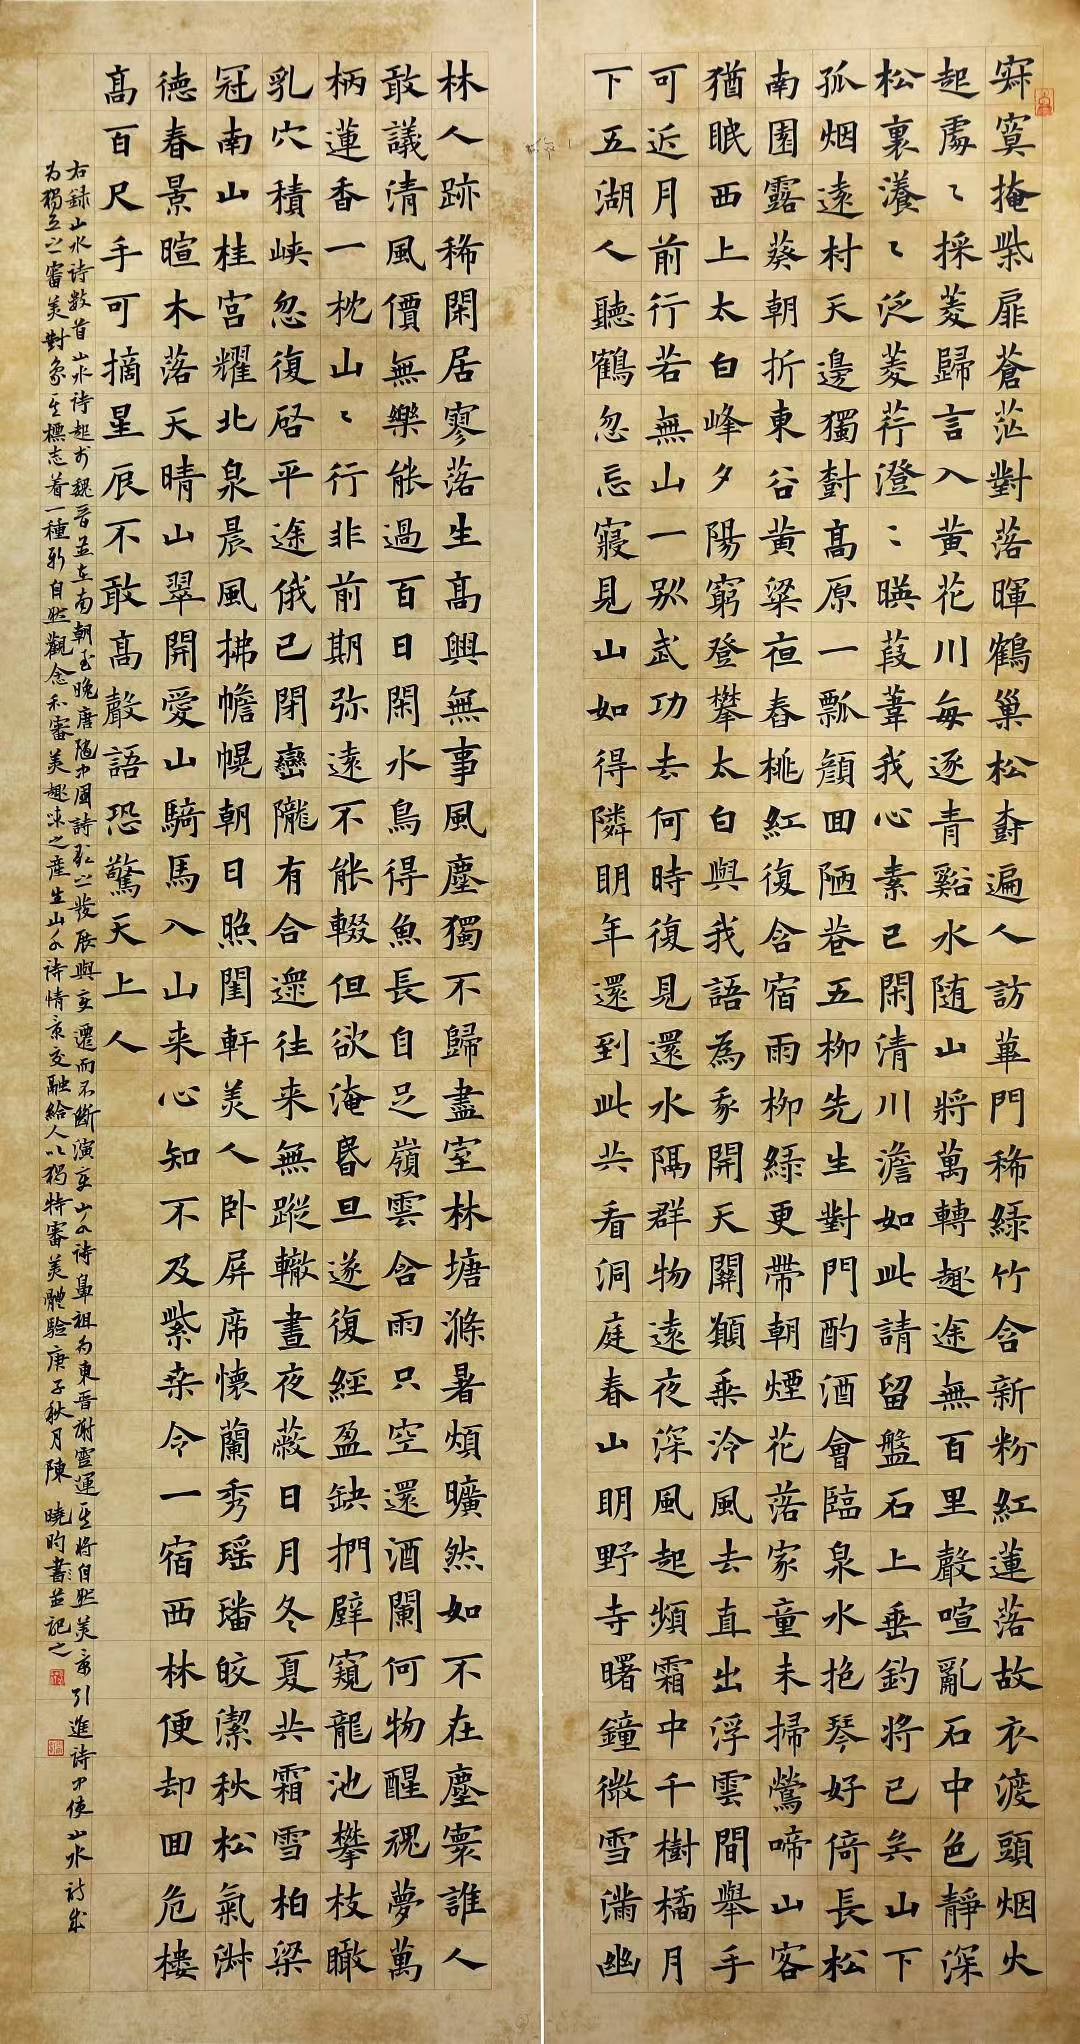 寂寞掩柴扉蒼茫對落暉鶴巢松樹遍人訪蓽門稀緑竹含新粉紅蓮落故衣渡頭烟火
起處〻採菱歸言入黃花川每逐青谿水随山將萬轉趣途無百里聲喧亂石中色靜深
松裏漾〻泛菱荇澄〻暎葭葦我心素已閑清川澹如此請留盤石上垂釣將已矣山下
孤烟遠村天邊獨對高原一瓢顏回陋巷五柳先生對門酌酒會臨泉水抱琴好倚長松
南園露葵朝折東谷黃粱夜舂桃紅復含宿雨柳緑更帶朝煙花落家童未掃鶯啼山客
猶眠西上太白峰夕陽窮登攀太白與我語為我開天關願乘泠風去直出浮雲間舉手
可近月前行若無山一別武功去何時復見還水隅群物遠夜深風起頻霜中千樹橘月
下五湖人聽鶴忽忘寢見山如得隣明年還到此共看洞庭春山明野寺曙鐘微雪滿幽
林人跡稀閑居寥落生高興無事風塵獨不歸盡室林塘滌暑煩曠然如不在塵寰誰人
敢議清風價無樂能過百日閑水鳥得魚長自足嶺雲含雨只空還酒闌何物醒魂夢萬
柄蓮香一枕山〻行非前期弥遠不能輟但欲淹昏旦遂復經盈缺捫壁窺龍池攀枝瞰
乳穴積峽忽復啓平途俄已閉巒隴有合遝往来無蹤轍晝夜蔽日月冬夏共霜雪柏梁
冠南山桂宮耀北泉晨風拂幨幌朝日照閨軒美人卧屏席懷蘭秀瑶璠皎潔秋松氣淋
德春景暄木落天晴山翠開愛山騎馬入山来心知不及紫桑令一宿西林便却回危樓
高百尺手可摘星辰不敢高聲語恐驚天上人
右録山水詩数首山水詩起於魏晉並在南朝至晚唐隨中國詩歌之發展與变遷而不断演变山水詩鼻祖为東晋谢靈運其将自然美景引進詩中使山水詩成
为獨立之審美對象其標志着一種新自然觀念和審美趣味之產生山水詩情景交融給人以獨特審美體驗庚子秋月陳曉昀書並記之